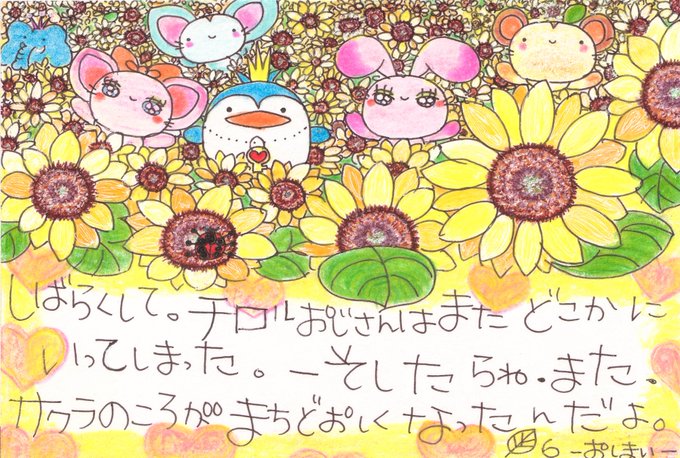 しばらくして。チロルおじさんはまたどこかに
いってしまった。ーそしたらね・また、
サクラのころがまちどおしくなったんだよ。
6 ーおしまいー